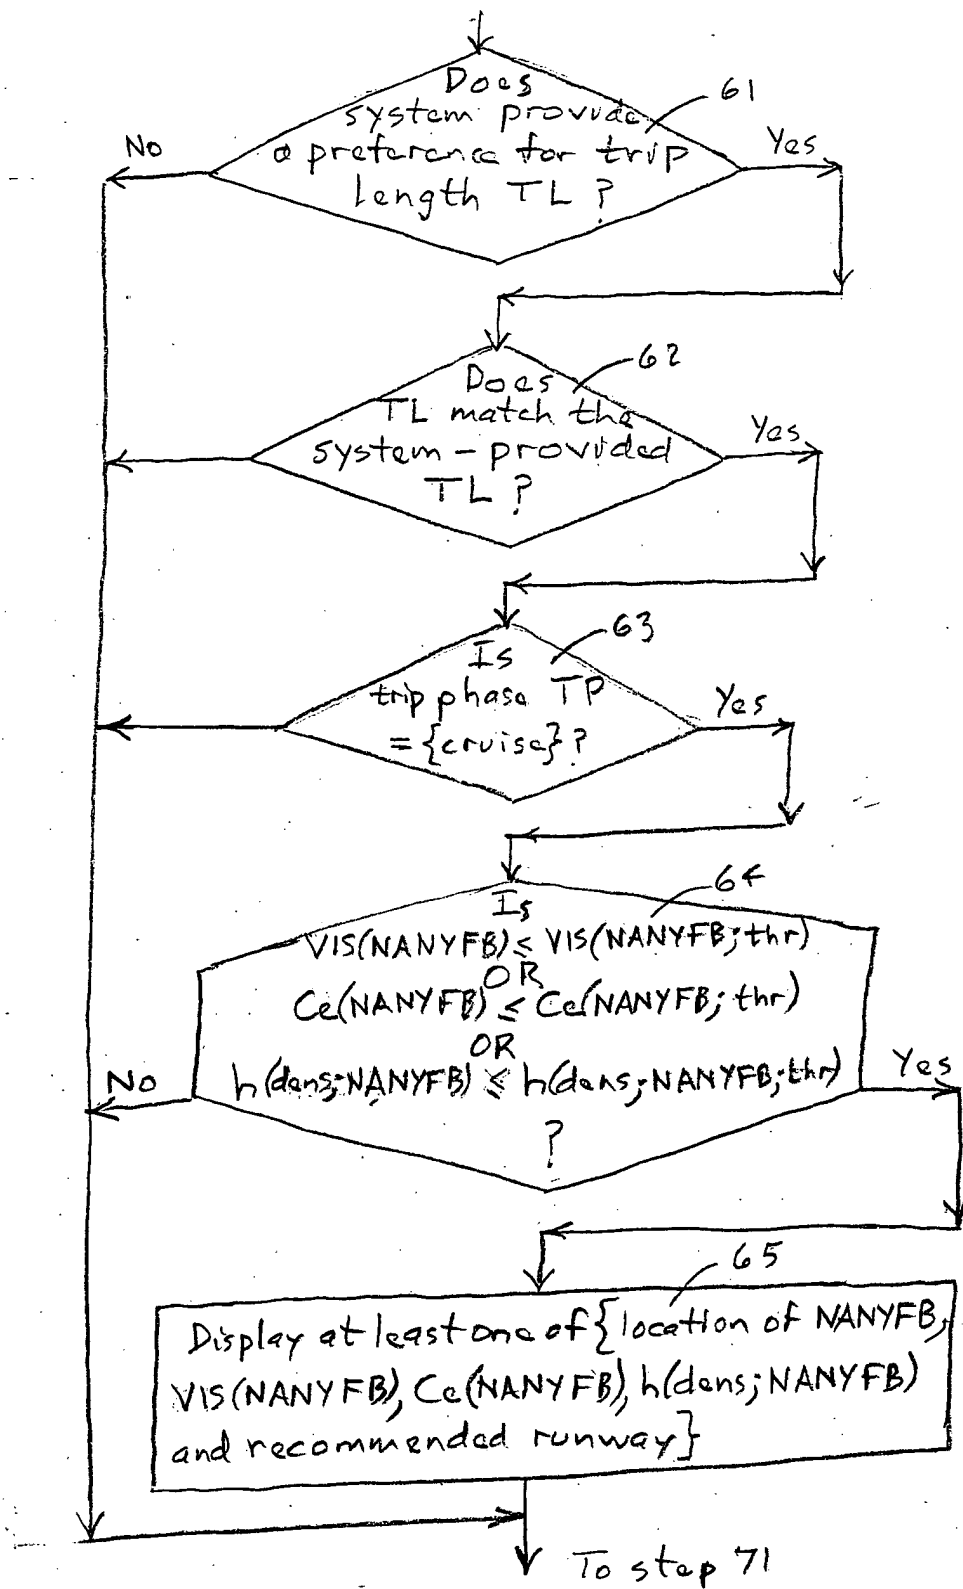 Does
system provide
a preference for trip
length TL ?
61
No
Yes
Does
TL match the
system - provided
TL ?
62
Yes
Is
trip phase TP
= {cruise} ?
63
Yes
Is
VIS(NANYFB) ≤ VIS(NANYFB; thr)
OR
Ce(NANYFB) ≤ Ce(NANYFB; thr)
OR
h(dens; NANYFB) ≤ h(dens; NANYFB; thr)
?
64
No
Yes
65
Display at least one of {location of NANYFB,
VIS(NANYFB), Ce(NANYFB), h(dens; NANYFB)
and recommended runway}
To step 71